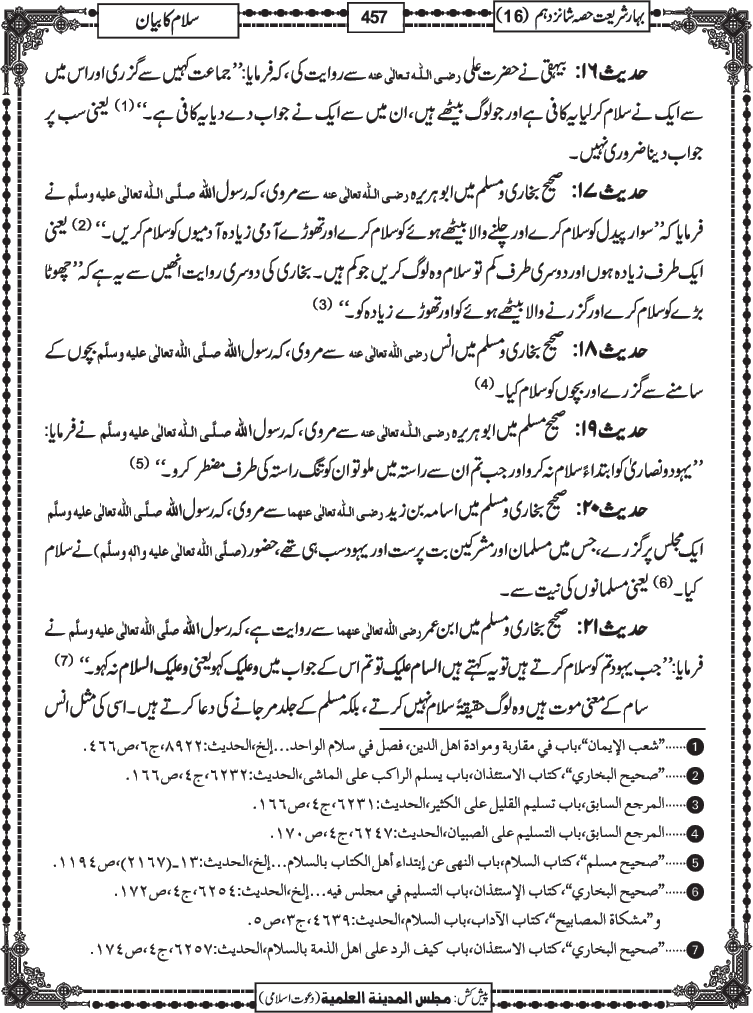 بہارشریعت حصہ شانزدہم (16)
457
سلام کا بیان
حدیث ۱۶: بیہقی نے حضرت علی رضی اللہ تعالٰی عنہ سے روایت کی، کہ فرمایا: ”جماعت کہیں سے گزری اور اس میں
سے ایک نے سلام کرلیا یہ کافی ہے اور جو لوگ بیٹھے ہیں، ان میں سے ایک نے جواب دے دیا یہ کافی ہے۔“ (1) یعنی سب پر
جواب دینا ضروری نہیں۔
حدیث ۱۷: صحیح بخاری و مسلم میں ابوہریرہ رضی اللہ تعالٰی عنہ سے مروی، کہ رسول اللہ صلَّی اللہ تعالٰی علیہ وسلَّم نے
فرمایا کہ ”سوار پیدل کو سلام کرے اور چلنے والا بیٹھے ہوئے کو سلام کرے اور تھوڑے آدمی زیادہ آدمیوں کو سلام کریں۔“ (2) یعنی
ایک طرف زیادہ ہوں اور دوسری طرف کم تو سلام وہ لوگ کریں جو کم ہیں۔ بخاری کی دوسری روایت انھیں سے یہ ہے کہ ”چھوٹا
بڑے کو سلام کرے اور گزرنے والا بیٹھے ہوئے کو اور تھوڑے زیادہ کو۔“ (3)
حدیث ۱۸: صحیح بخاری و مسلم میں انس رضی اللہ تعالٰی عنہ سے مروی، کہ رسول اللہ صلَّی اللہ تعالٰی علیہ وسلَّم بچوں کے
سامنے سے گزرے اور بچوں کو سلام کیا۔ (4)
حدیث ۱۹: صحیح مسلم میں ابوہریرہ رضی اللہ تعالٰی عنہ سے مروی، کہ رسول اللہ صلَّی اللہ تعالٰی علیہ وسلَّم نے فرمایا:
”یہود و نصاریٰ کو ابتداءً سلام نہ کرو اور جب تم ان سے راستہ میں ملو تو ان کو تنگ راستہ کی طرف مضطر کرو۔“ (5)
حدیث ۲۰: صحیح بخاری و مسلم میں اسامہ بن زید رضی اللہ تعالٰی عنہما سے مروی، کہ رسول اللہ صلَّی اللہ تعالٰی علیہ وسلَّم
ایک مجلس پر گزرے، جس میں مسلمان اور مشرکین بت پرست اور یہود سب ہی تھے، حضور (صلَّی اللہ تعالٰی علیہ والہٖ وسلَّم) نے سلام
کیا۔ (6) یعنی مسلمانوں کی نیت سے۔
حدیث ۲۱: صحیح بخاری و مسلم میں ابن عمر رضی اللہ تعالٰی عنہما سے روایت ہے، کہ رسول اللہ صلَّی اللہ تعالٰی علیہ وسلَّم نے
فرمایا: ”جب یہود تم کو سلام کرتے ہیں تو یہ کہتے ہیں السام علیک تو تم اس کے جواب میں وعلیک کہو یعنی وعلیک السلام نہ کہو۔“ (7)
سام کے معنی موت ہیں وہ لوگ حقیقۃً سلام نہیں کرتے، بلکہ مسلم کے جلد مر جانے کی دعا کرتے ہیں۔ اسی کی مثل انس
1 ......"شعب الإيمان"، باب في مقاربة وموادة اهل الدين، فصل في سلام الواحد...إلخ، الحديث: ٨٩٢٢، ج٦، ص٤٦٦.
2 ......"صحيح البخاري"، كتاب الاستئذان، باب يسلم الراكب على الماشى، الحديث: ٦٢٣٢، ج٤، ص١٦٦.
3 ......المرجع السابق، باب تسليم القليل على الكثير، الحديث: ٦٢٣١، ج٤، ص١٦٦.
4 ......المرجع السابق، باب التسليم على الصبيان، الحديث: ٦٢٤٧، ج٤، ص١٧٠.
5 ......"صحيح مسلم"، كتاب السلام، باب النهى عن إبتداء أهل الكتاب بالسلام...إلخ، الحديث: ١٣ـ(٢١٦٧)، ص١١٩٤.
6 ......"صحيح البخاري"، كتاب الإستئذان، باب التسليم في مجلس فيه...إلخ، الحديث: ٦٢٥٤، ج٤، ص١٧٢.
و"مشكاة المصابيح"، كتاب الآداب، باب السلام، الحديث: ٤٦٣٩، ج٣، ص٥.
7 ......"صحيح البخاري"، كتاب الاستئذان، باب كيف الرد على اهل الذمة بالسلام، الحديث: ٦٢٥٧، ج٤، ص١٧٤.
پیش کش: مجلس المدينة العلمية (دعوت اسلامی)